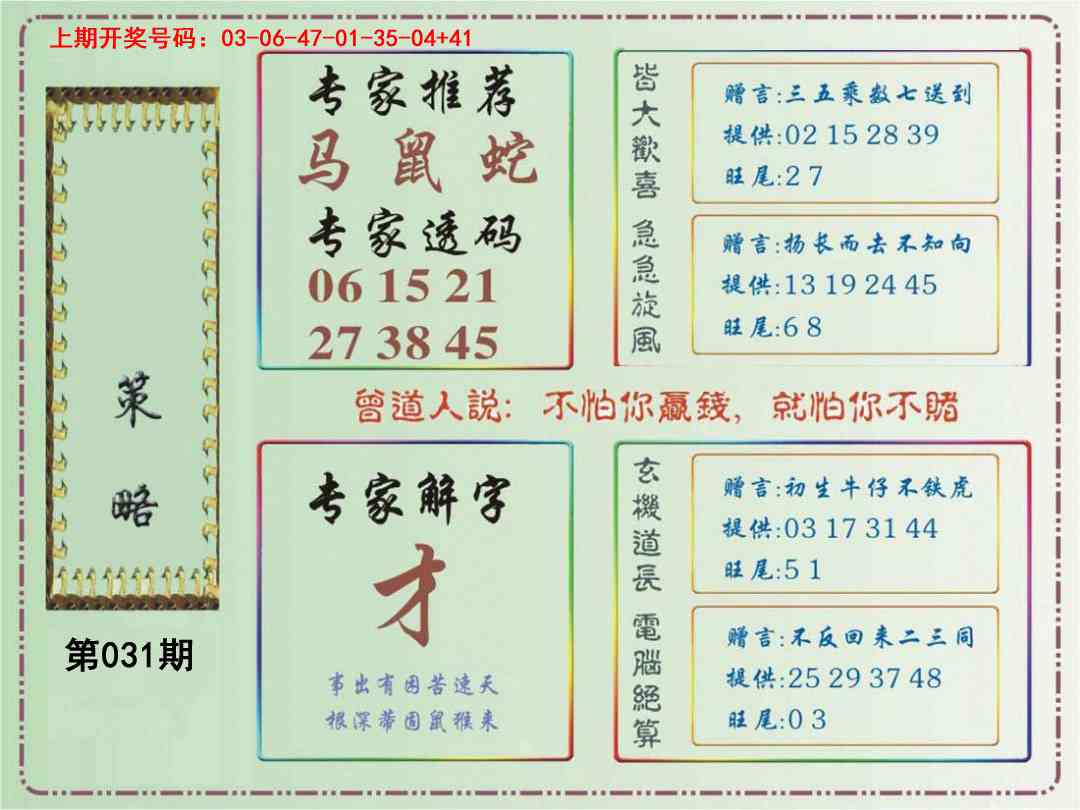 上期开奖号码：03-06-47-01-35-04+41
策略
第031期
专家推荐
马 鼠 蛇
专家透码
06 15 21
27 38 45
皆大歡喜
赠言:三五乘数七送到
提供:02 15 28 39
旺尾:2 7
急急旋風
赠言:扬长而去不知向
提供:13 19 24 45
旺尾:6 8
曾道人説：不怕你贏錢，就怕你不賭
专家解字
才
事出有因苦速天
根深蒂固鼠猴来
玄機道長
赠言:初生牛仔不铁虎
提供:03 17 31 44
旺尾:5 1
電腦絕算
赠言:不反回来二三同
提供:25 29 37 48
旺尾:0 3